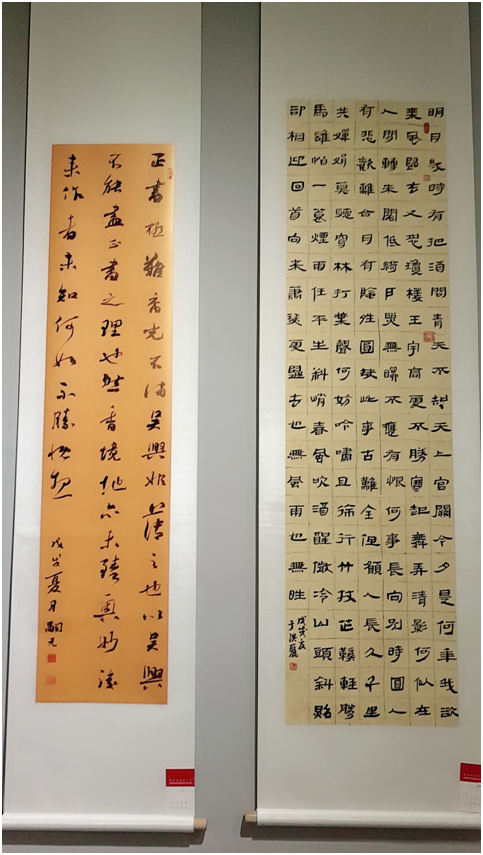 明月幾時有把酒問青天不知天上宮闕今夕是何年我欲
乘風歸去又恐瓊樓玉宇高處不勝寒起舞弄清影何似在
人間轉朱閣低綺戶照無眠不應有恨何事長向別時圓人
有悲歡離合月有陰晴圓缺此事古難全但願人長久千里
共嬋娟莫聽穿林打葉聲何妨吟嘯且徐行竹杖芒鞵輕勝
馬誰怕一蓑煙雨任平生料峭春風吹酒醒微冷山頭斜照
卻相迎回首向來蕭瑟處歸去也無風雨也無晴
戊戌夏
于洪麗
正書極難香光不滿吳興之也以吳興
不能盡正書之理也然香境地亦未臻奧妙後
来作者未知何如不勝
戊戌夏月嗣元